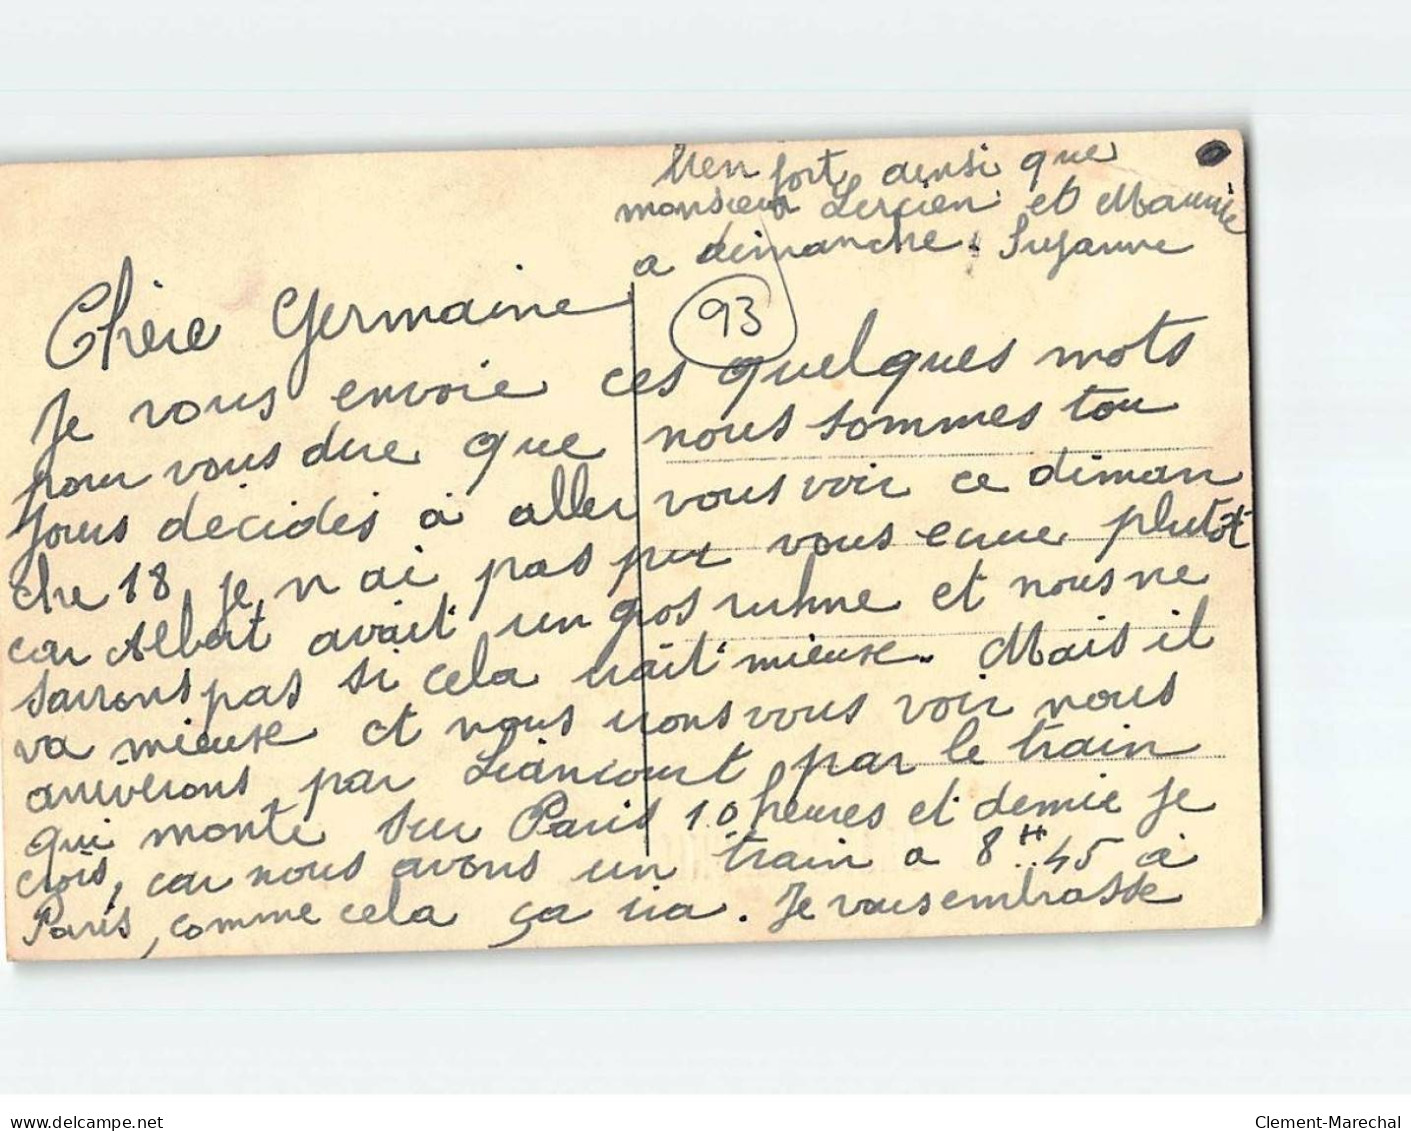 Chère Germaine
Je vous envoie ces quelques mots
pour vous dire que nous sommes tou
jours décidés à aller vous voir ce diman
che 18 je n ai pas pu vous ecrire plutôt
car Albert avait un gros ruhme et nous ne
savons pas si cela irait mieuse. Mais il
va mieuse et nous irons vous voir nous
arriverons par Liancourt par le train
qui monte sur Paris 10 heures et demie je
crois, car nous avons un train a 8H45 à
Paris, comme cela ça ira. Je vous embrasse
bien fort ainsi que
monsieur Lucien et Mauricie
a dimanche. Suzanne
93
www.delcampe.net
Clement-Marechal